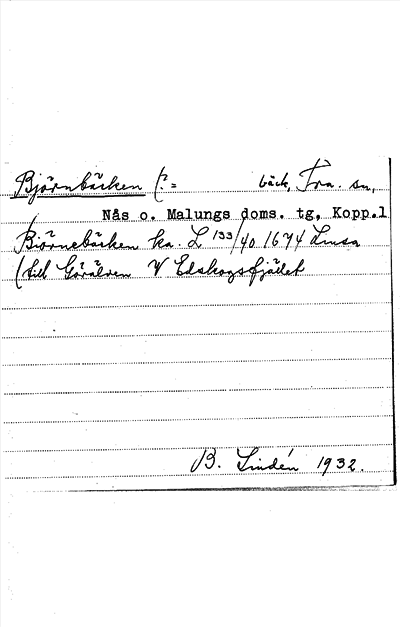 Björnbäcken (? = bäck, Tra. sn,
Nås o. Malungs doms. tg, Kopp.l
Biörnebäcken ka. L 133/40 1674 Lmsa
(till Görälven V Edskogsfjället
B. Lindén 1932.